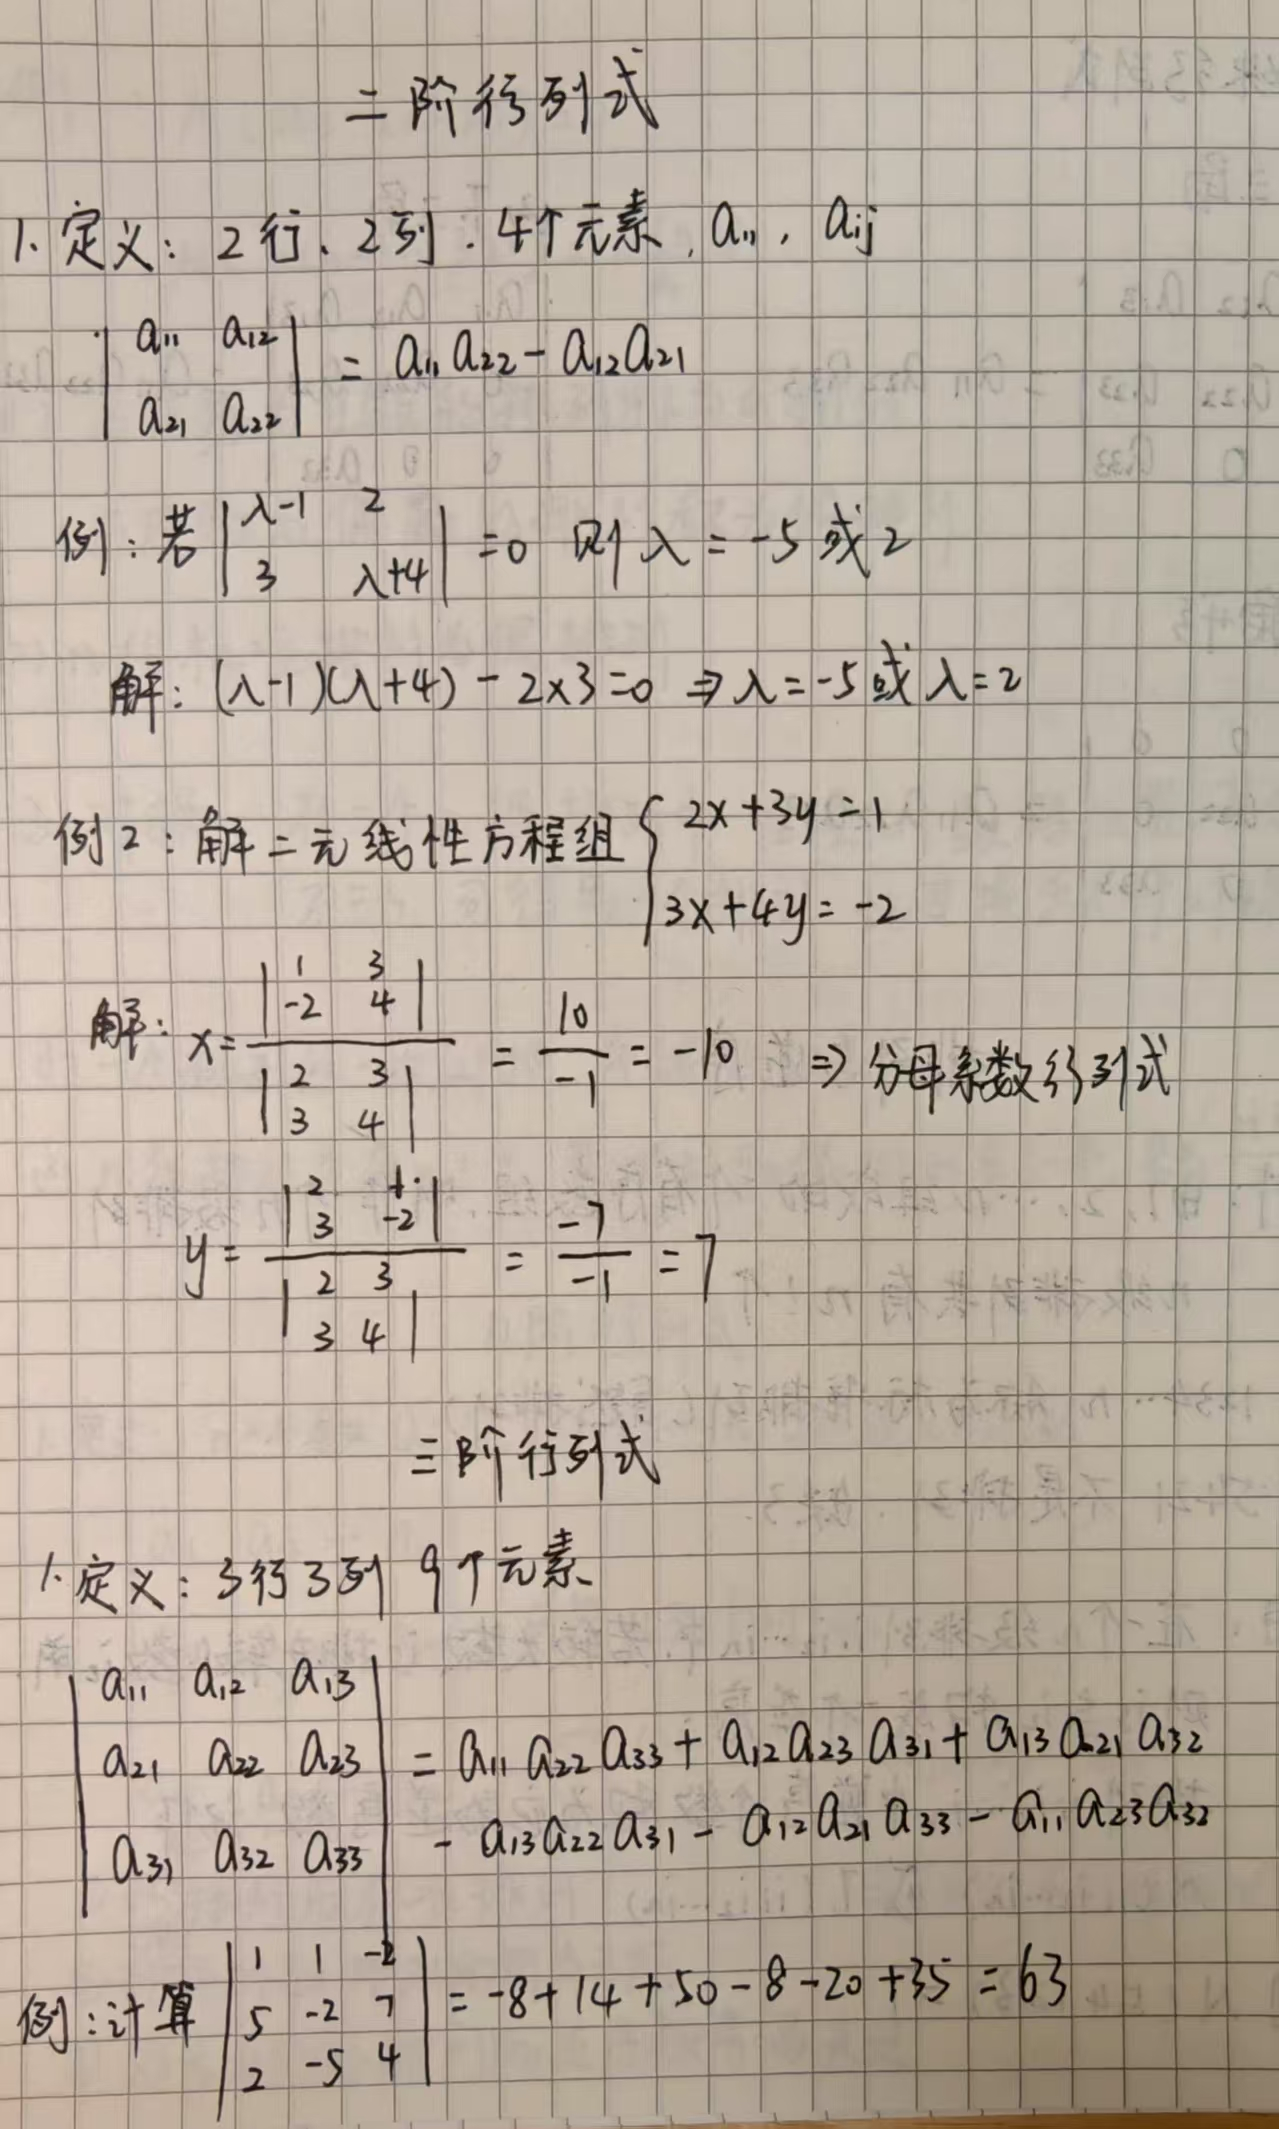 二阶行列式
1. 定义：2行、2列．4个元素，a₁₁，aᵢⱼ
| a₁₁ a₁₂ |
| a₂₁ a₂₂ | = a₁₁a₂₂ - a₁₂a₂₁
例：若 | λ-1 2 |
| 3 λ+4 | =0 则 λ = -5 或 2
解：(λ-1)(λ+4) - 2×3=0 ⇒ λ=-5 或 λ=2
例2：解二元线性方程组 { 2x+3y=1
3x+4y=-2
解：x= | 1 3 |
| -2 4 |
| 2 3 |
| 3 4 | = 10/-1 = -10 ⇒ 分母系数行列式
y= | 2 1 |
| 3 -2 |
| 2 3 |
| 3 4 | = -7/-1 = 7
三阶行列式
1. 定义：3行3列 9个元素
| a₁₁ a₁₂ a₁₃ |
| a₂₁ a₂₂ a₂₃ | = a₁₁a₂₂a₃₃ + a₁₂a₂₃a₃₁ + a₁₃a₂₁a₃₂
| a₃₁ a₃₂ a₃₃ | - a₁₃a₂₂a₃₁ - a₁₂a₂₁a₃₃ - a₁₁a₂₃a₃₂
例：计算 | 1 1 -2 |
| 5 -2 7 | = -8+14+50-8-20+35 = 63
| 2 -5 4 |